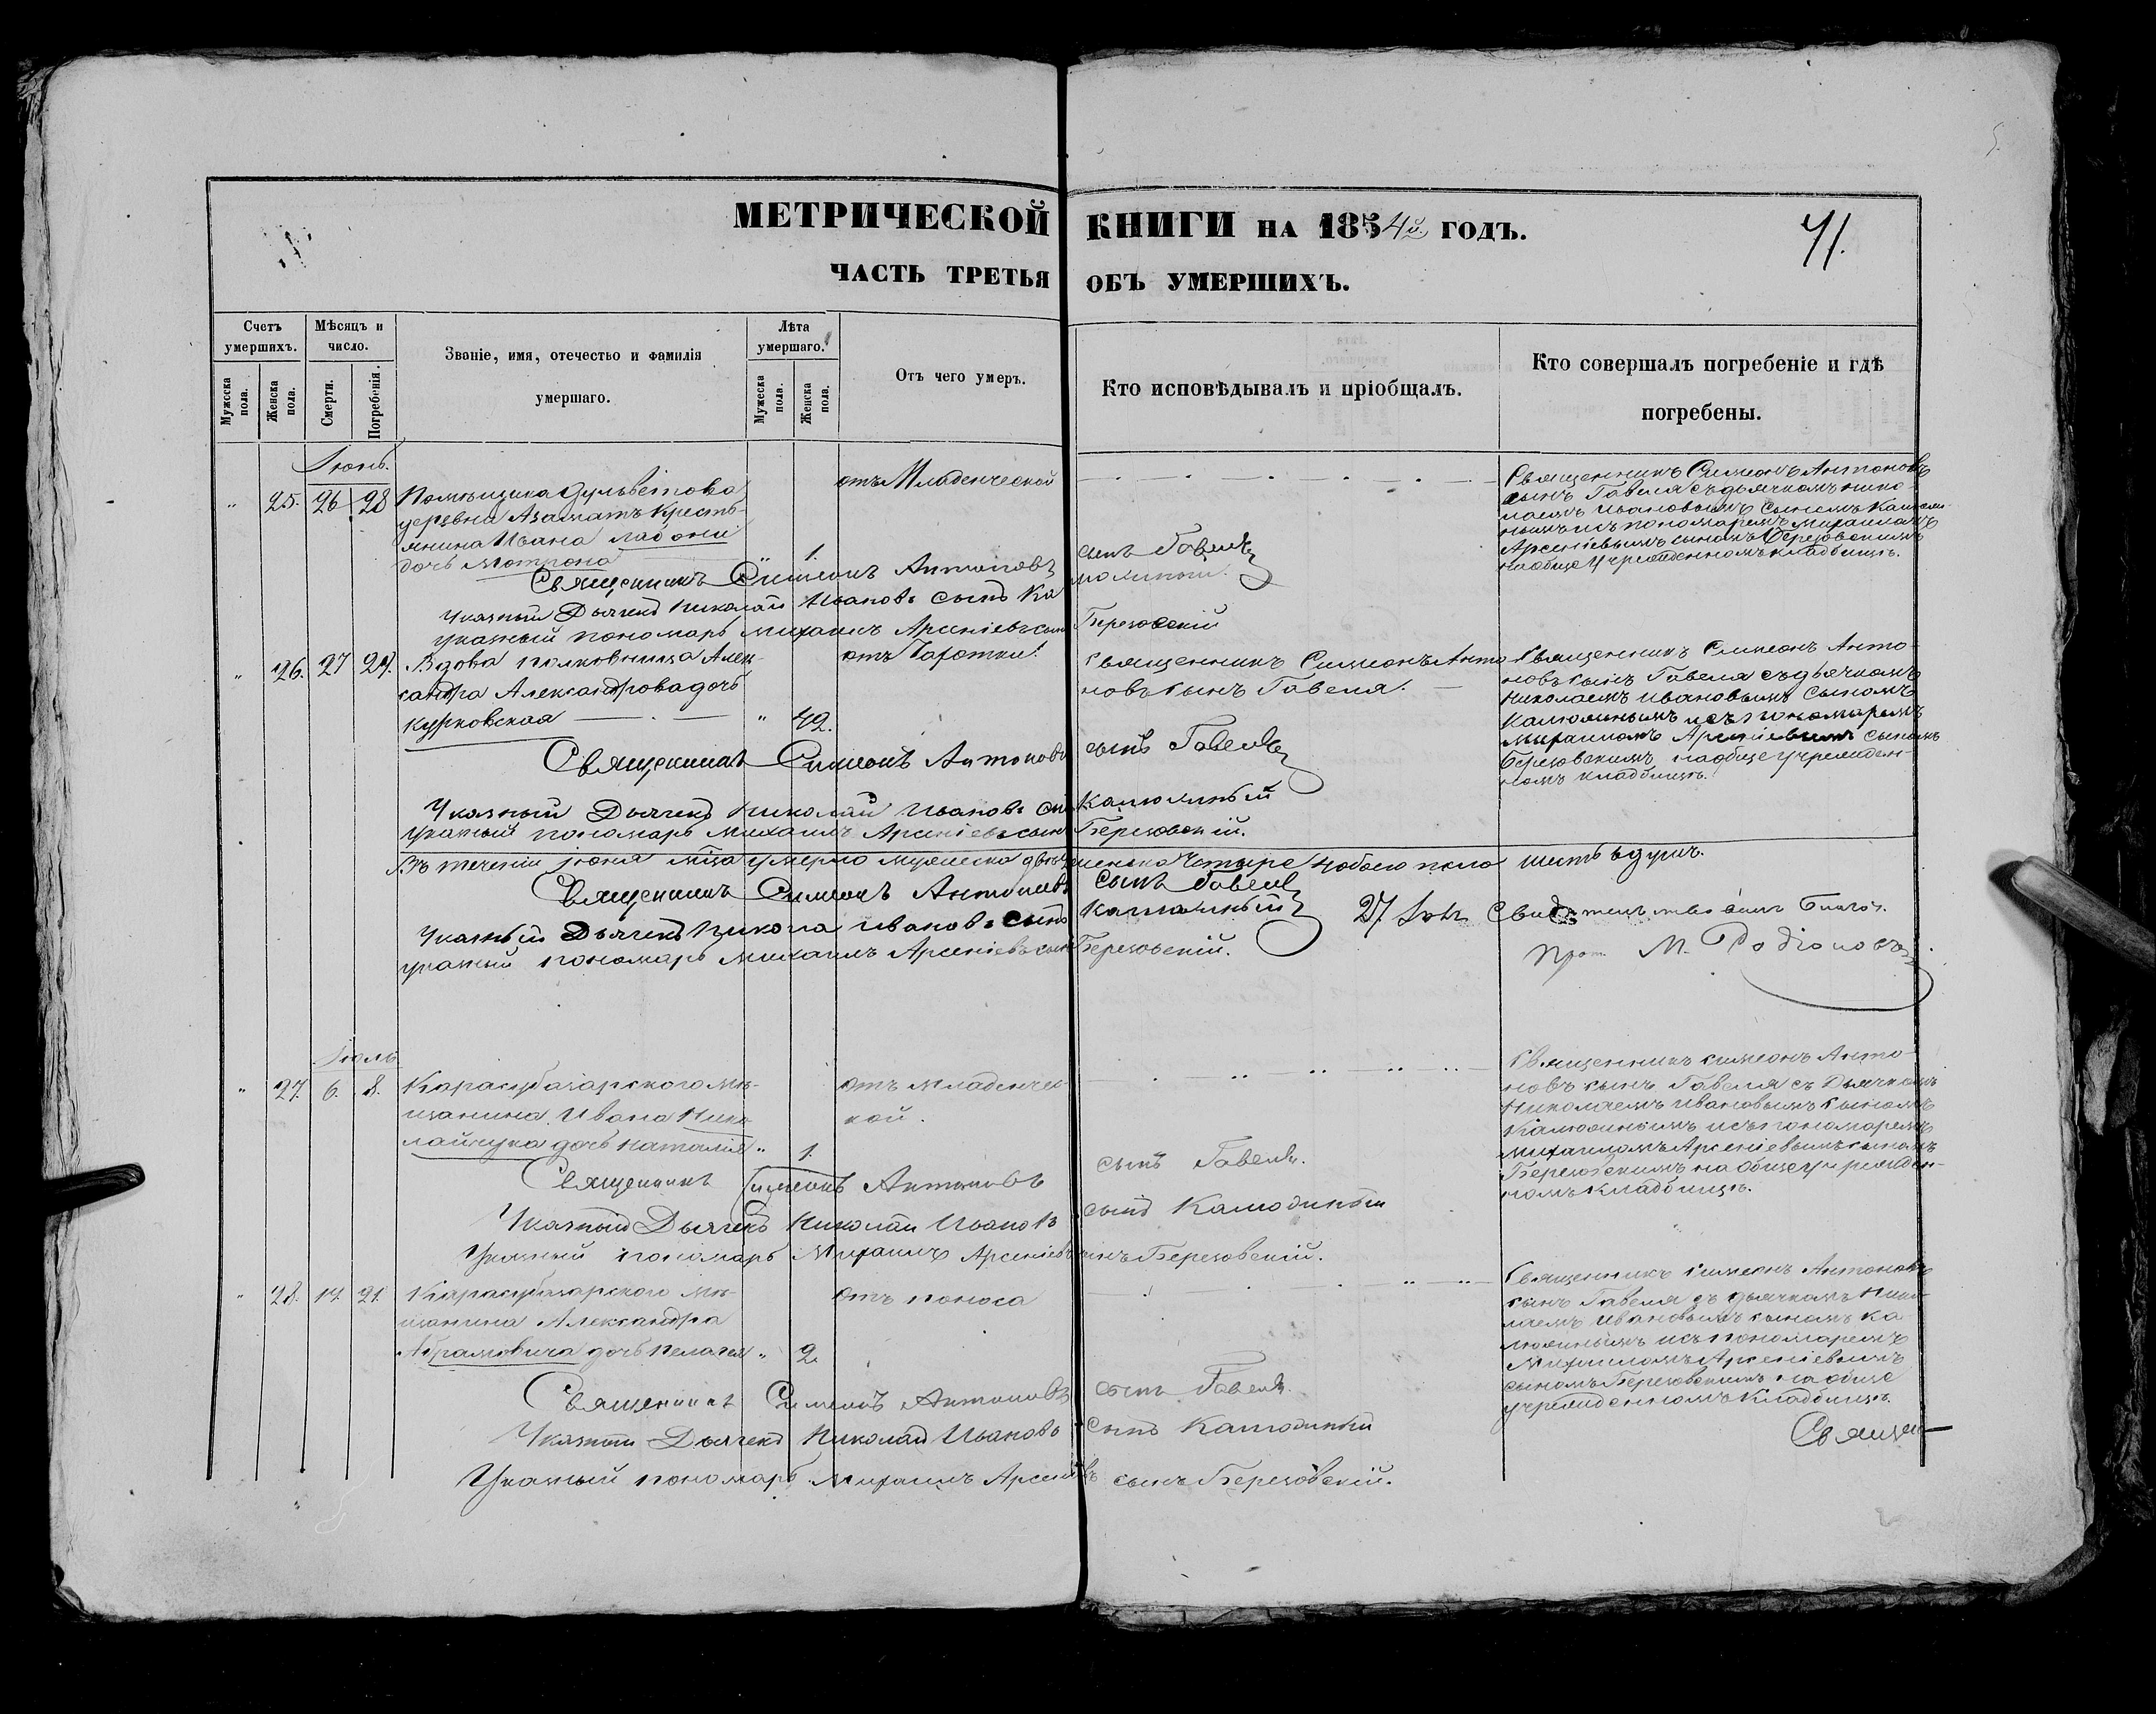 МЕТРИЧЕСКОЙ КНИГИ НА 1854й. ГОДЪ.
41.
ЧАСТЬ ТРЕТЬЯ ОБЪ УМЕРШИХЪ.
Счетъ умершихъ.
Мужеска пола.
Женска пола.
Мѣсяцъ и число.
Смерти.
Погребенія.
Званіе, имя, отечество и фамилія умершаго.
Лѣта умершаго.
Мужеска пола.
Женска пола.
Отъ чего умеръ.
Кто исповѣдывалъ и пріобщалъ.
Кто совершалъ погребеніе и гдѣ погребены.
Іюнь.
„ 25. 26 28
Помѣщика
деревни Азаматъ Кресть-
янина Ивана
дочь Мотрона „ 1.
отъ Младенческой
Священникъ Симеонъ Антоновъ
сынъ Гавеля съ дьячкомъ Нико-
лаемъ Ивановымъ сыномъ
и съ пономаремъ Михаиломъ
Арсеніевымъ сыномъ Березовскимъ
на общеучрежденномъ кладбищѣ.
Священникъ Симеонъ Антоновъ сынъ Гавеля
Указный Дьячекъ Николай Ивановъ сынъ
указный пономарь Михаилъ Арсеніевъ сынъ Березовскій
„ 26. 27 29.
Вдова полковница Алек-
сандра Александрова дочь
Курковская „ 42.
отъ Чахотки
Священникъ Симеонъ Анто-
новъ сынъ Гавеля.
Священникъ Симеонъ Анто-
новъ сынъ Гавеля съ дьячкомъ
Николаемъ Ивановымъ сыномъ
и съ пономаремъ
Михаиломъ Арсеніевымъ сыномъ
Березовскимъ на общеучрежден-
номъ кладбищѣ.
Священникъ Симеонъ Антоновъ сынъ Гавеля
Указный Дьячекъ Николай Ивановъ сынъ
указный пономарь Михаилъ Арсеніевъ сынъ Березовскій.
Въ теченіи іюня мѣса умерло мужеска два женска четыре и обоего пола шесть душъ.
Священникъ Симеонъ Антоновъ сынъ Гавеля
Указный Дьячекъ Никола Ивановъ сынъ
указный пономарь Михаилъ Арсеніевъ сынъ Березовскій.
27
Прот. М. Родіоновъ
Іюль
„ 27. 6. 8.
Карасубазарского мѣ-
щанина Ивана Нико-
лайчука дочь Наталія „ 1.
отъ младенчес-
кой.
Священникъ Симеонъ Анто-
новъ сынъ Гавеля съ Дьячкомъ
Николаемъ Ивановымъ сыномъ
и съ пономаремъ
Михаиломъ Арсеніевымъ сыномъ
Березовскимъ на общеучрежден-
номъ кладбищѣ.
Священникъ Симеонъ Антоновъ сынъ Гавеля.
Указный Дьячекъ Николай Ивановъ сынъ
Указный пономарь Михаилъ Арсеніевъ сынъ Березовскій.
„ 28. 21
Карасубазарского мѣ-
щанина Александра
Абрамовича дочь Пелагея „ 2.
отъ поноса
Священникъ Симеонъ Антоновъ
сынъ Гавеля съ дьячкомъ Нико-
лаемъ Ивановымъ сыномъ
и съ пономаремъ
Михаиломъ Арсеніевымъ
сыномъ Березовскимъ на обще
учрежденномъ кладбищѣ.
Священникъ Симеонъ Антоновъ сынъ Гавеля.
Указный Дьячекъ Николай Ивановъ сынъ
Указный пономарь Михаилъ Арсеніевъ сынъ Березовскій.
Священ-